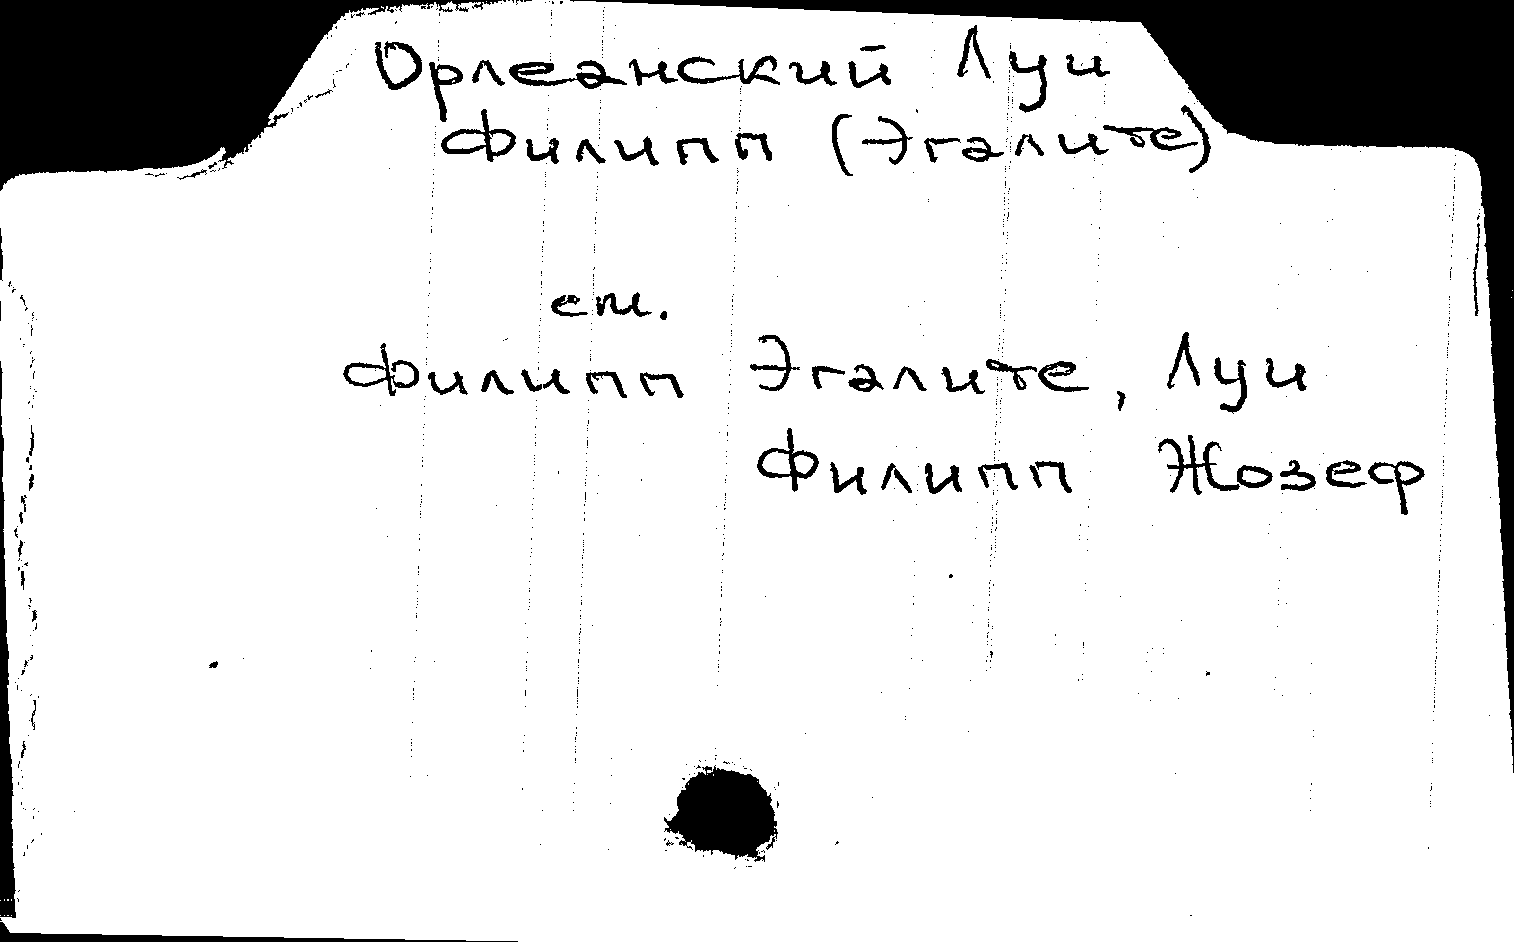 Орлеанский Луи
Филипп (Эгалите)
см.
Филипп Эгалите, Луи
Филипп Жозеф